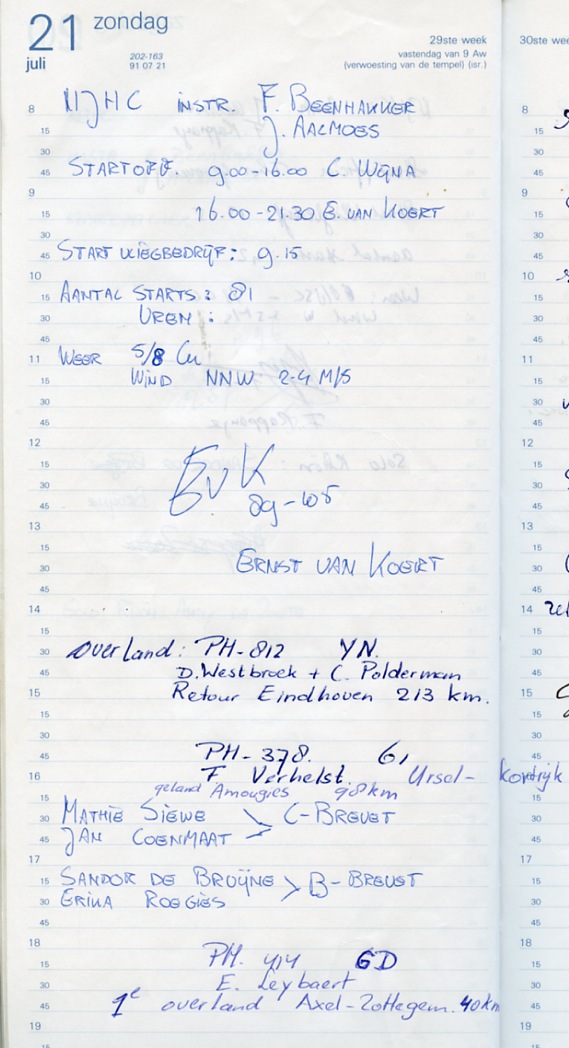 21 zondag
juli
202-163
91 07 21
29ste week
vastendag van 9 Aw
(verwoesting van de tempel) (isr.)
30ste wee
INSTR. F. BEENHAKKER
J. AALMOES
STARTOFF. 9.00-16.00 C. WIJNA
16.00-21.30 E. VAN KOERT
START VLIEGBEDRIJF: 9.15
AANTAL STARTS: 81
UREN:
WEER 5/8 Cu
WIND NNW 2-4 M/S
EvK
89-105
ERNST VAN KOERT
overland: PH-812 YN.
D. Westbroek + C. Polderman
Retour Eindhoven 213 km.
PH-378. 61
F Verhelst. Ursel- Kortrijk
geland Amougies 98km
MATHIË SIEWE
JAN COENMAAT
> C-BREVET
SANDOR DE BRUIJNE
ERIKA ROEGIËS
> B-BREVET
PH. 414 GD
E. Leybaert
1e overland Axel-Zottegem. 40km
8
15
30
45
9
15
30
45
10
15
30
45
11
15
30
45
12
15
30
45
13
15
30
45
14
15
30
45
15
15
30
45
16
15
30
45
17
15
30
45
18
15
30
45
19